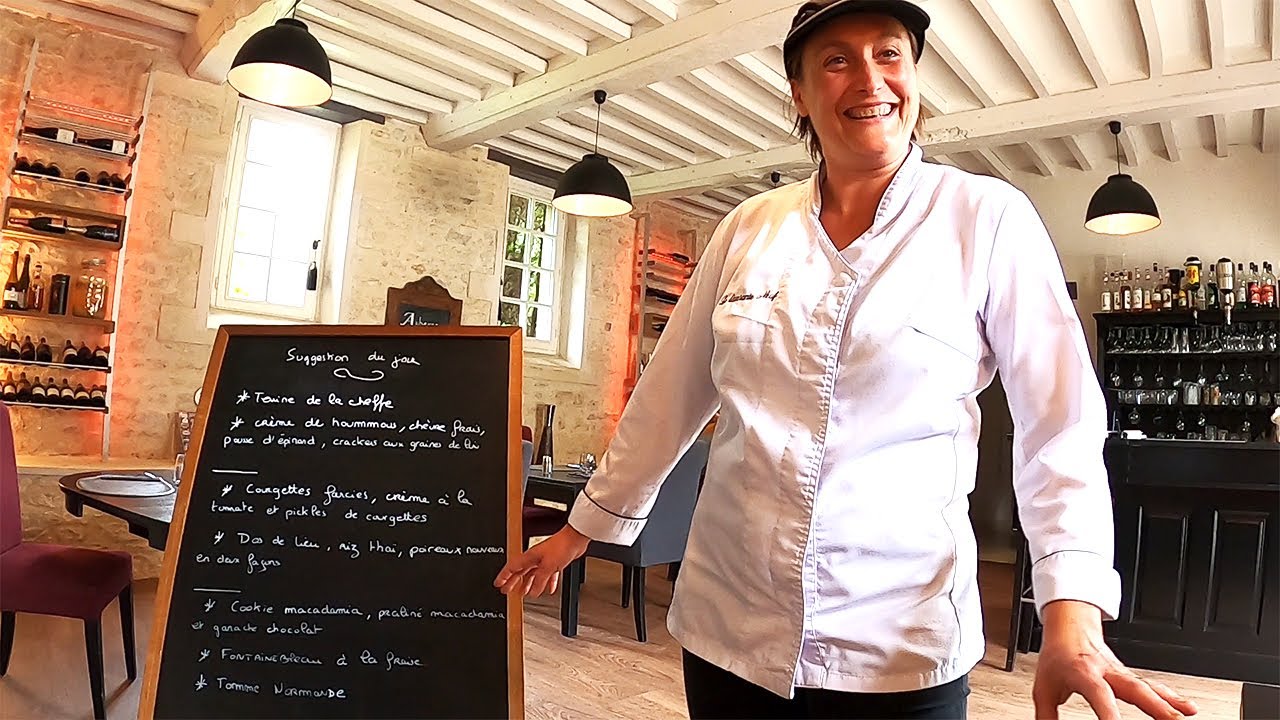 Suggestion du jour
* Terrine de la cheffe
* crème de hoummous, chèvre frais,
pousse d'épinard, crackers aux graines de lin
* Courgettes farcies, crème à la
tomate et pickles de courgettes
* Dos de lieu, riz thaï, poireaux nouveaux
en deux façons
* Cookie macadamia, praliné macadamia
et ganache chocolat
* Fontainebleau à la fraise
* Tomme Normande